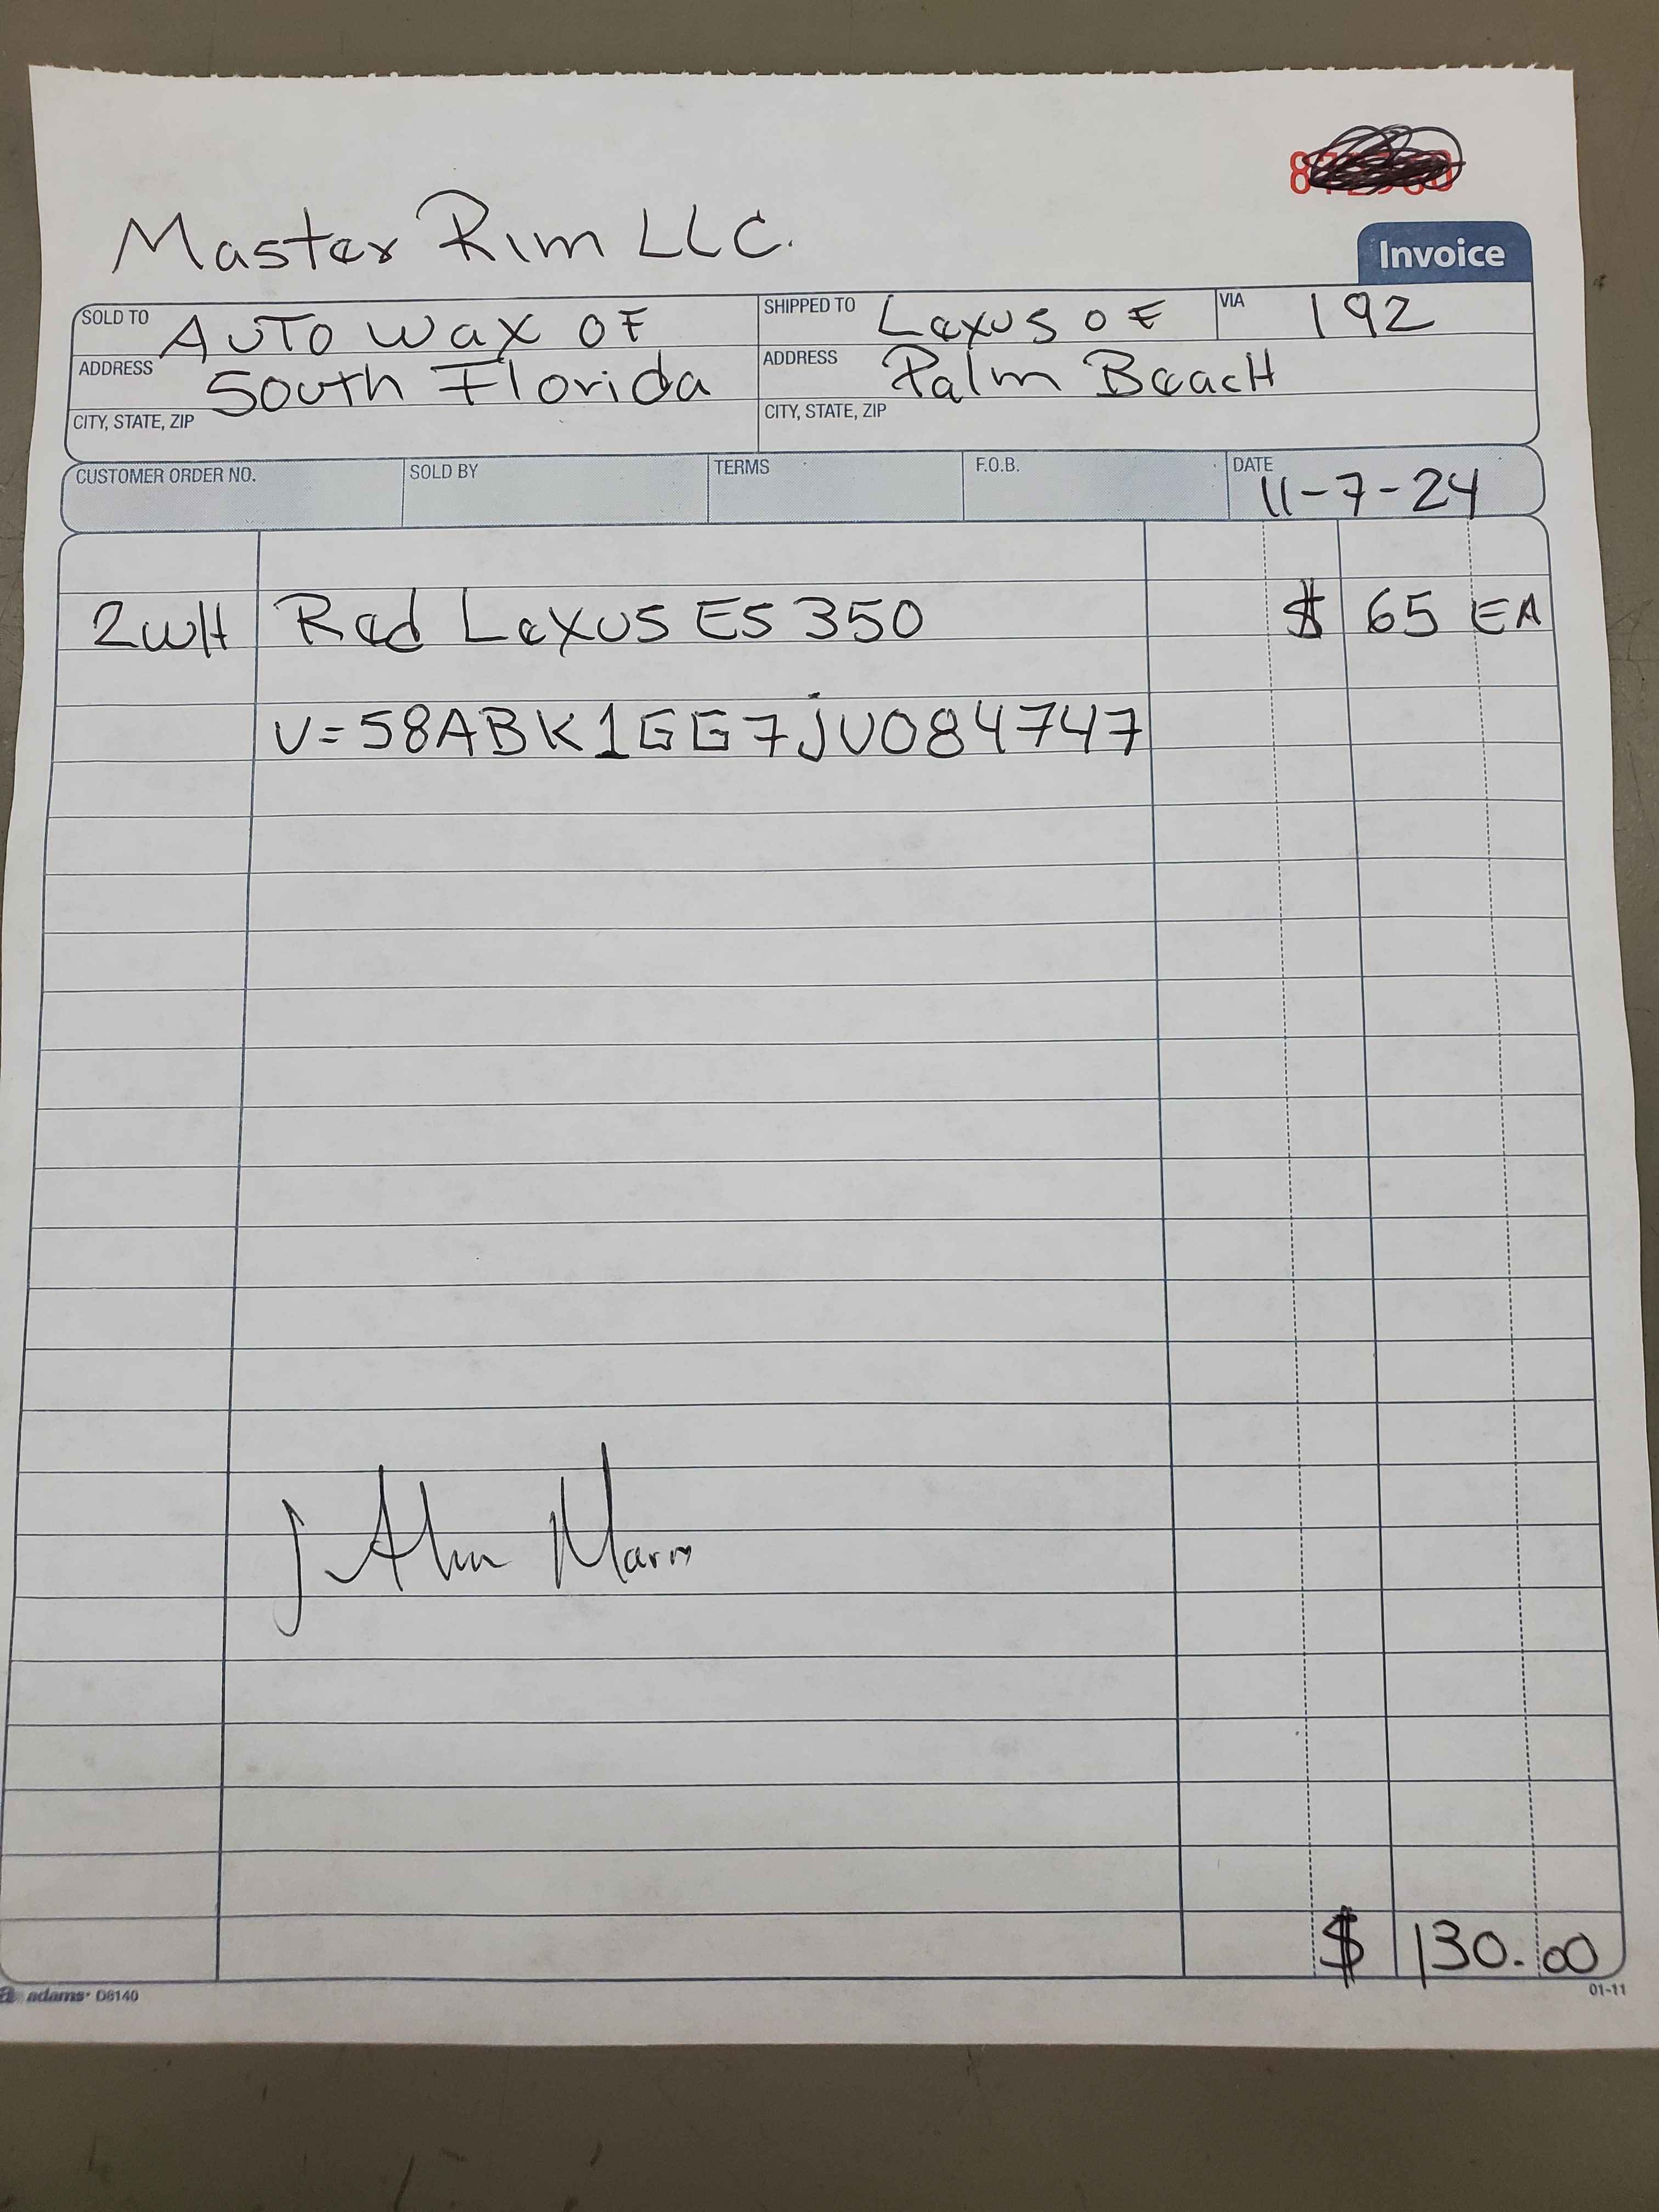 Master Rim LLC.
Invoice
SOLD TO Auto Wax of
SHIPPED TO Lexus of
VIA 192
ADDRESS South Florida
ADDRESS Palm Beach
CITY, STATE, ZIP
CITY, STATE, ZIP
CUSTOMER ORDER NO. SOLD BY TERMS F.O.B. DATE 11-7-24
2WH Red Lexus ES 350 $ 65 EA
V=58ABK1GG7JU084747
$ 130.00
adams D8140 01-11